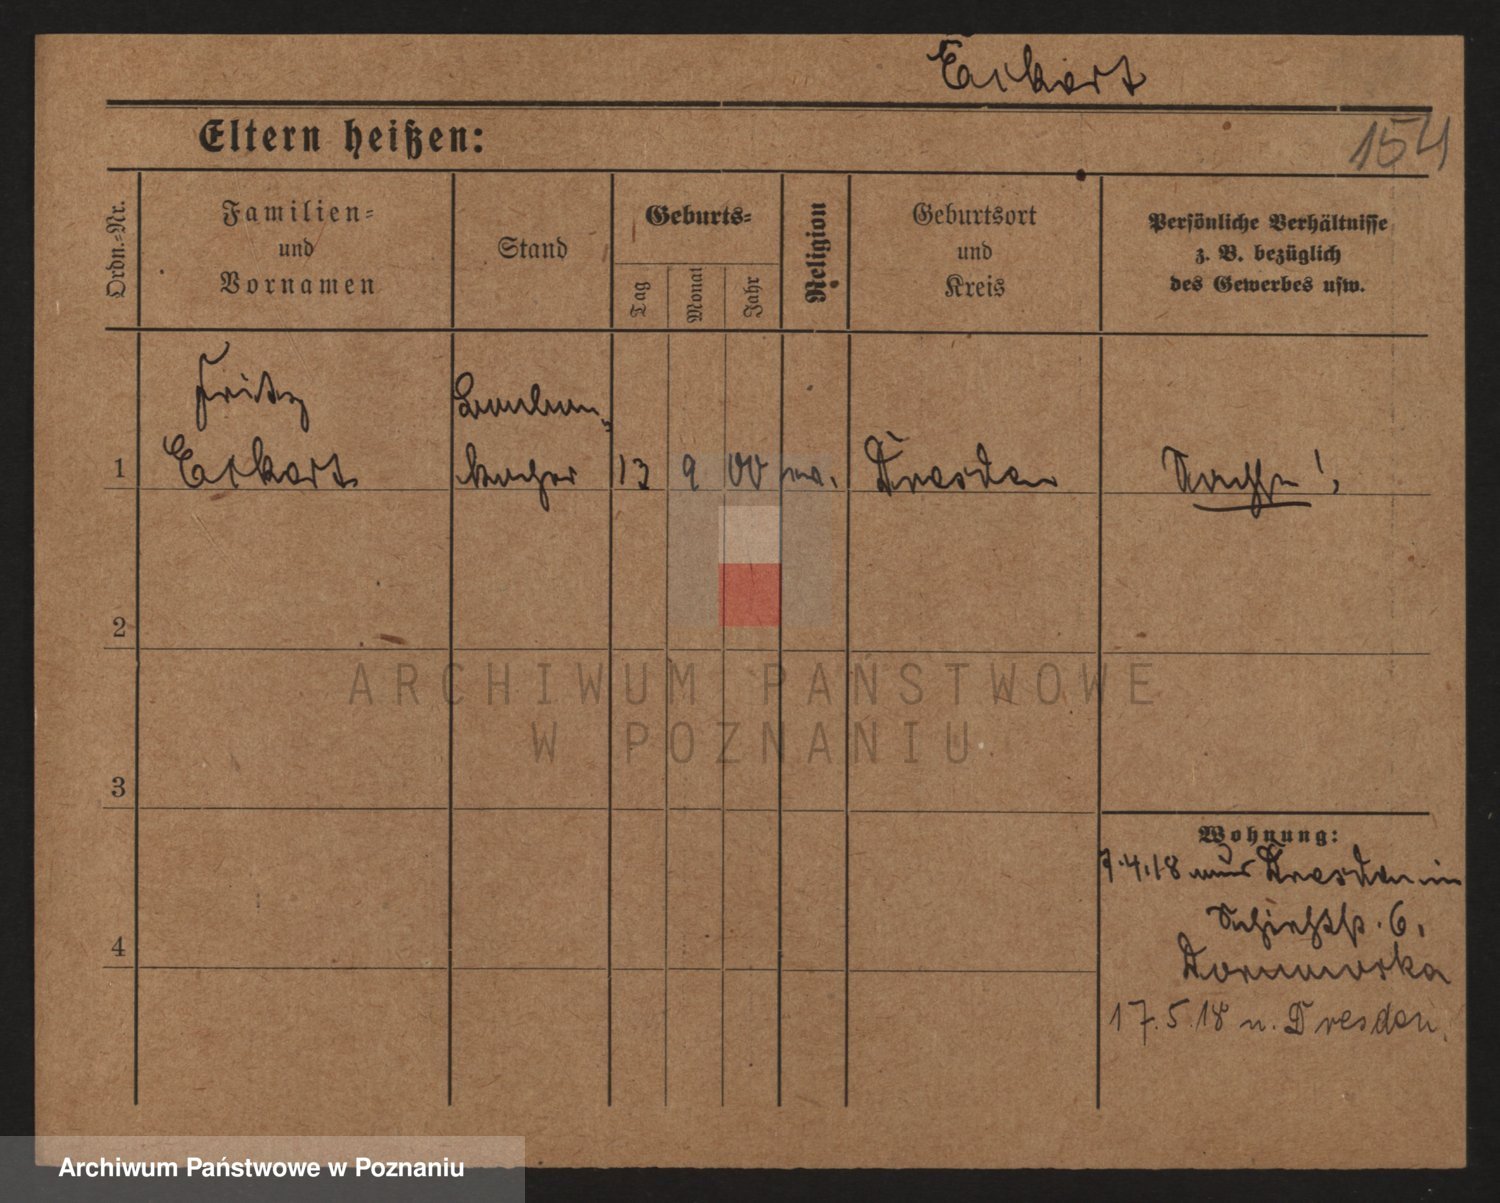 Eckert
154
Eltern heißen:
Ordn.-Nr.
Familien-
und
Vornamen
Stand
Geburts-
Tag
Monat
Jahr
Religion
Geburtsort
und
Kreis
Persönliche Verhältnisse
z. B. bezüglich
des Gewerbes usw.
1
Fritz
Eckert
13
9
00
ev.
Dresden
Sachse!
2
3
4
Wohnung:
7.4.18 aus Dresden in
Schießstr. 6,
17.5.18 n. Dresden.
ARCHIWUM PAŃSTWOWE
W POZNANIU
Archiwum Państwowe w Poznaniu